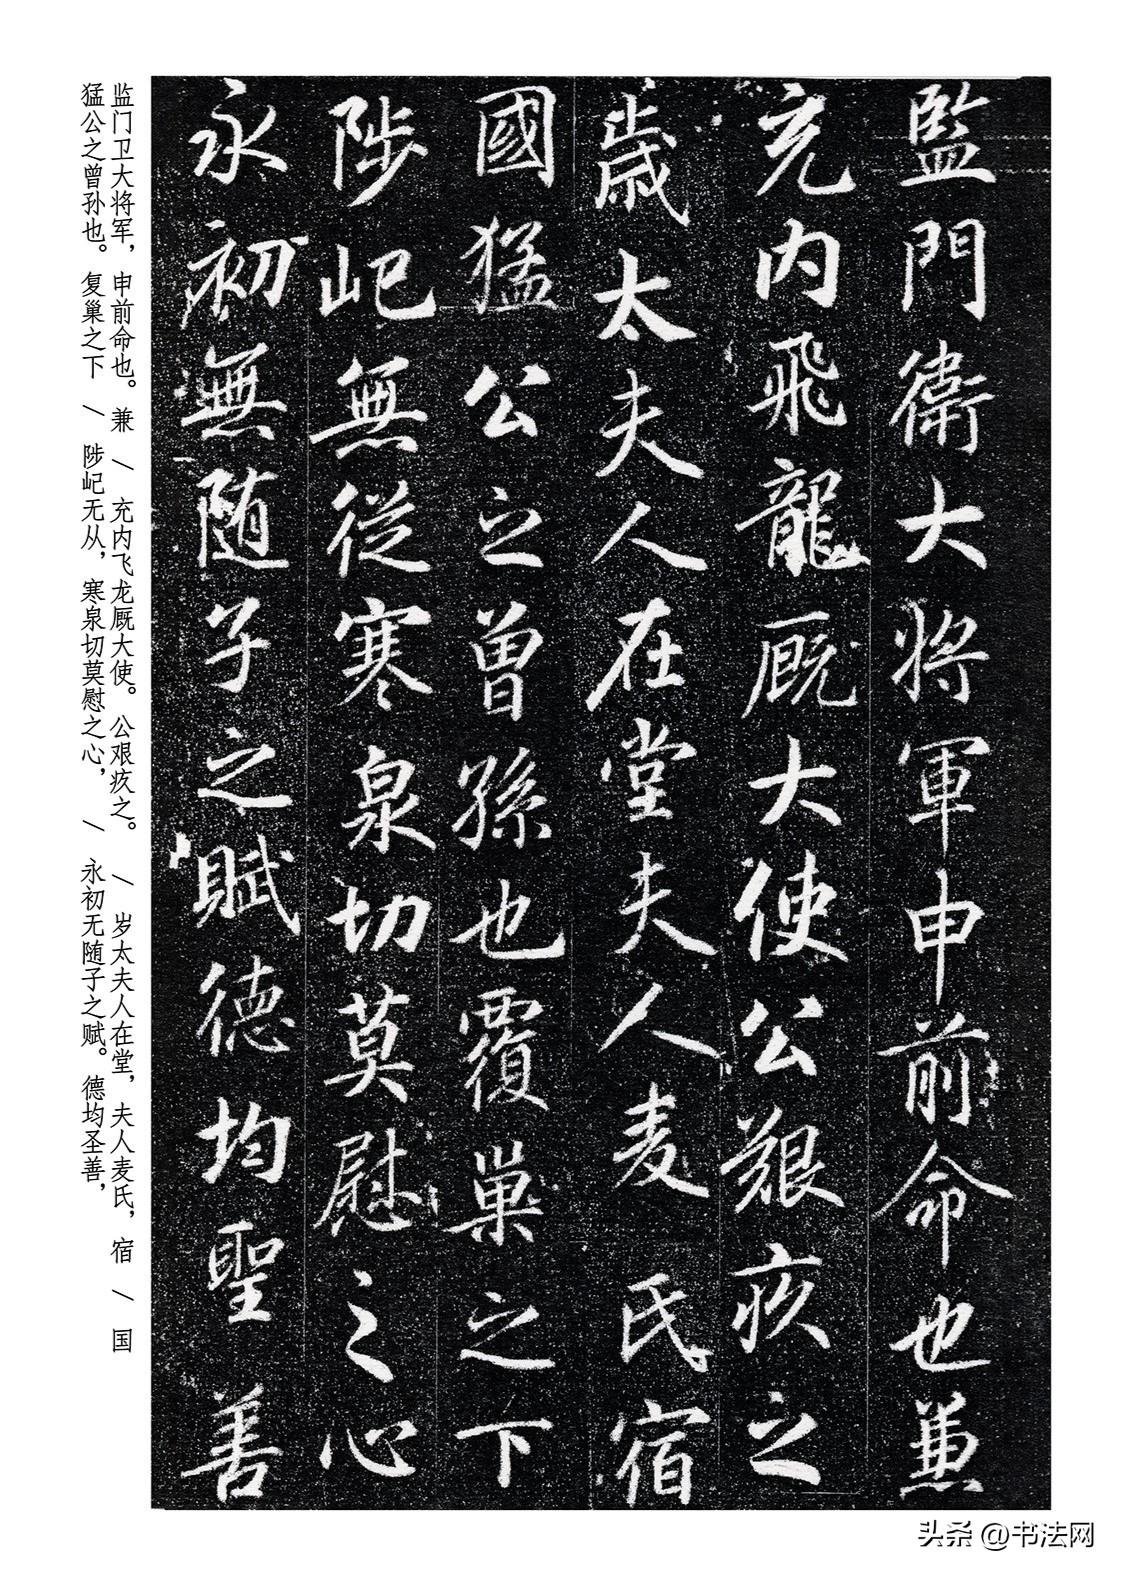 監門衛大將軍申前命也兼
充内飛龍厩大使公艱疚之
歳太夫人在堂夫人麦氏宿
國猛公之曽孫也覆巢之下
陟屺無從寒泉切莫慰之心
永初無随子之賦德均聖善
监门卫大将军，申前命也。兼 / 充内飞龙厩大使。公艰疚之。 / 岁太夫人在堂，夫人麦氏，宿 / 国
猛公之曾孙也。复巢之下 / 陟屺无从，寒泉切莫慰之心， / 永初无随子之赋。德均圣善，
头条 @书法网